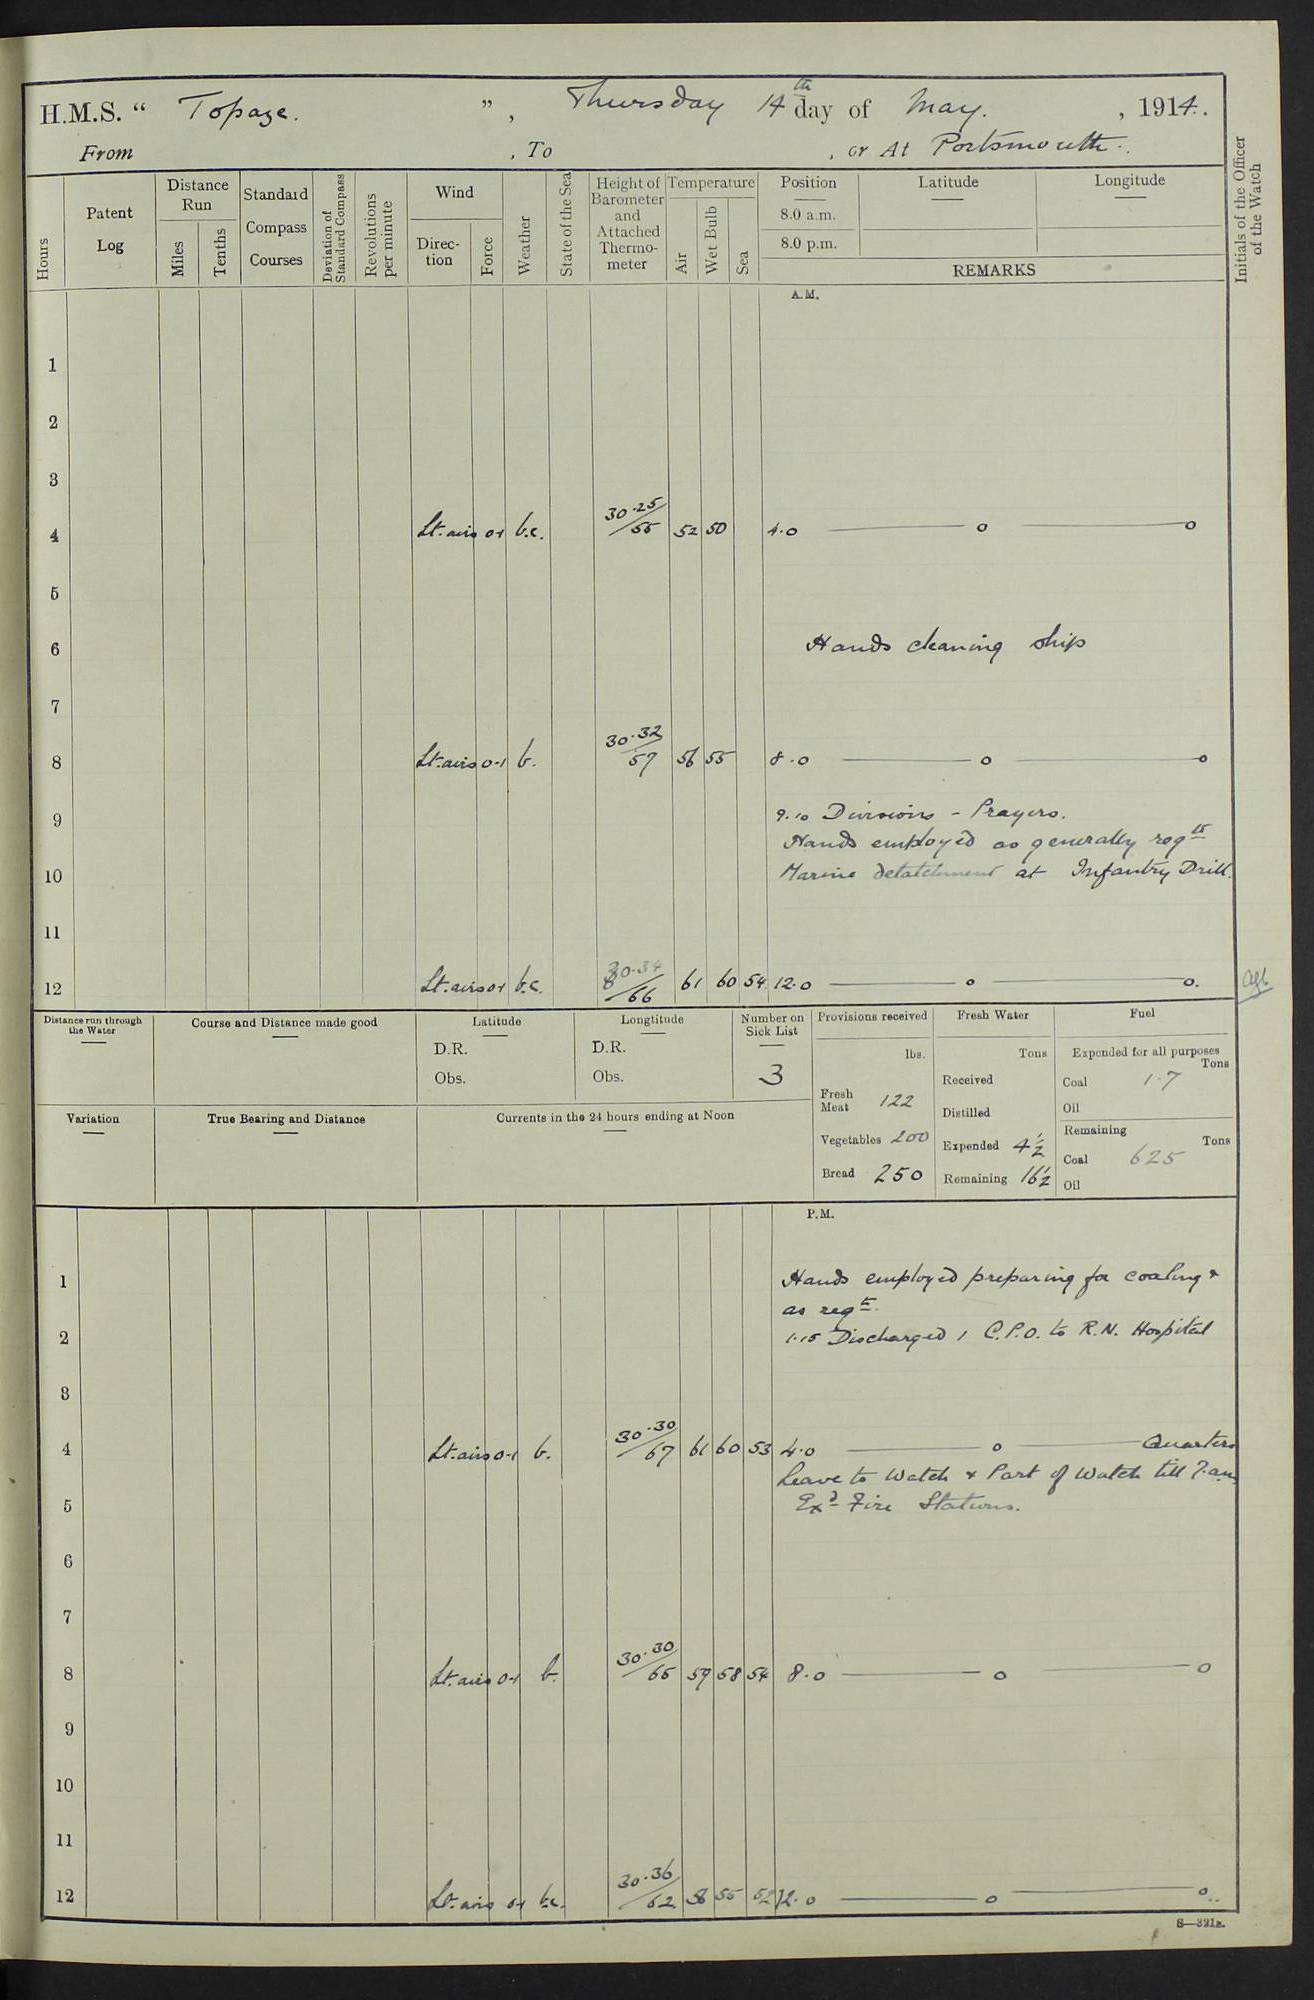 H.M.S. “ Topaze. ”, Thursday 14th day of May. , 1914.
From , To , or At Portsmouth.
Hours
Patent Log
Distance Run
Miles
Tenths
Standard Compass Courses
Deviation of Standard Compass
Revolutions per minute
Wind
Direc-tion
Force
Weather
State of the Sea
Height of Barometer and Attached Thermo-meter
Temperature
Air
Wet Bulb
Sea
Position
8.0 a.m.
8.0 p.m.
Latitude
Longitude
REMARKS
Initials of the Officer of the Watch
A.M.
1
2
3
4 Lt. airs 0-1 b.c. 30.25/55 52 50 4.0 — o — o
5
6 Hands cleaning ship
7
8 Lt. airs 0-1 b. 30.32/57 56 55 8.0 — o — o
9 9.10 Divisions - Prayers.
Hands employed as generally reqte
10 Marine detatchment at Infantry Drill.
11
12 Lt. airs 0-1 b.c. 30.34/66 61 60 54 12.0 — o — o.
Distance run through the Water
Course and Distance made good
Latitude
D.R.
Obs.
Longtitude
D.R.
Obs.
Number on Sick List
3
Provisions received
lbs.
Fresh Meat 122
Vegetables 200
Bread 250
Fresh Water
Tons
Received
Distilled
Expended 4½
Remaining 16½
Fuel
Expended for all purposes
Tons
Coal 1.7
Oil
Remaining
Tons
Coal 625
Oil
Variation
True Bearing and Distance
Currents in the 24 hours ending at Noon
P.M.
1 Hands employed preparing for coaling &
as reqte.
2 1.15 Discharged 1 C.P.O. to R.N. Hospital
3
4 Lt. airs 0-1 b. 30.30/67 61 60 53 4.0 — o — Quarters
Leave to Watch & Part of Watch till 7.am
5 Exd Fire Stations.
6
7
8 Lt. airs 0-1 b. 30.30/65 59 58 54 8.0 — o — o
9
10
11
12 Lt. airs 0-1 b.c. 30.36/62 56 55 52 12.0 — o — o..
S—321a.